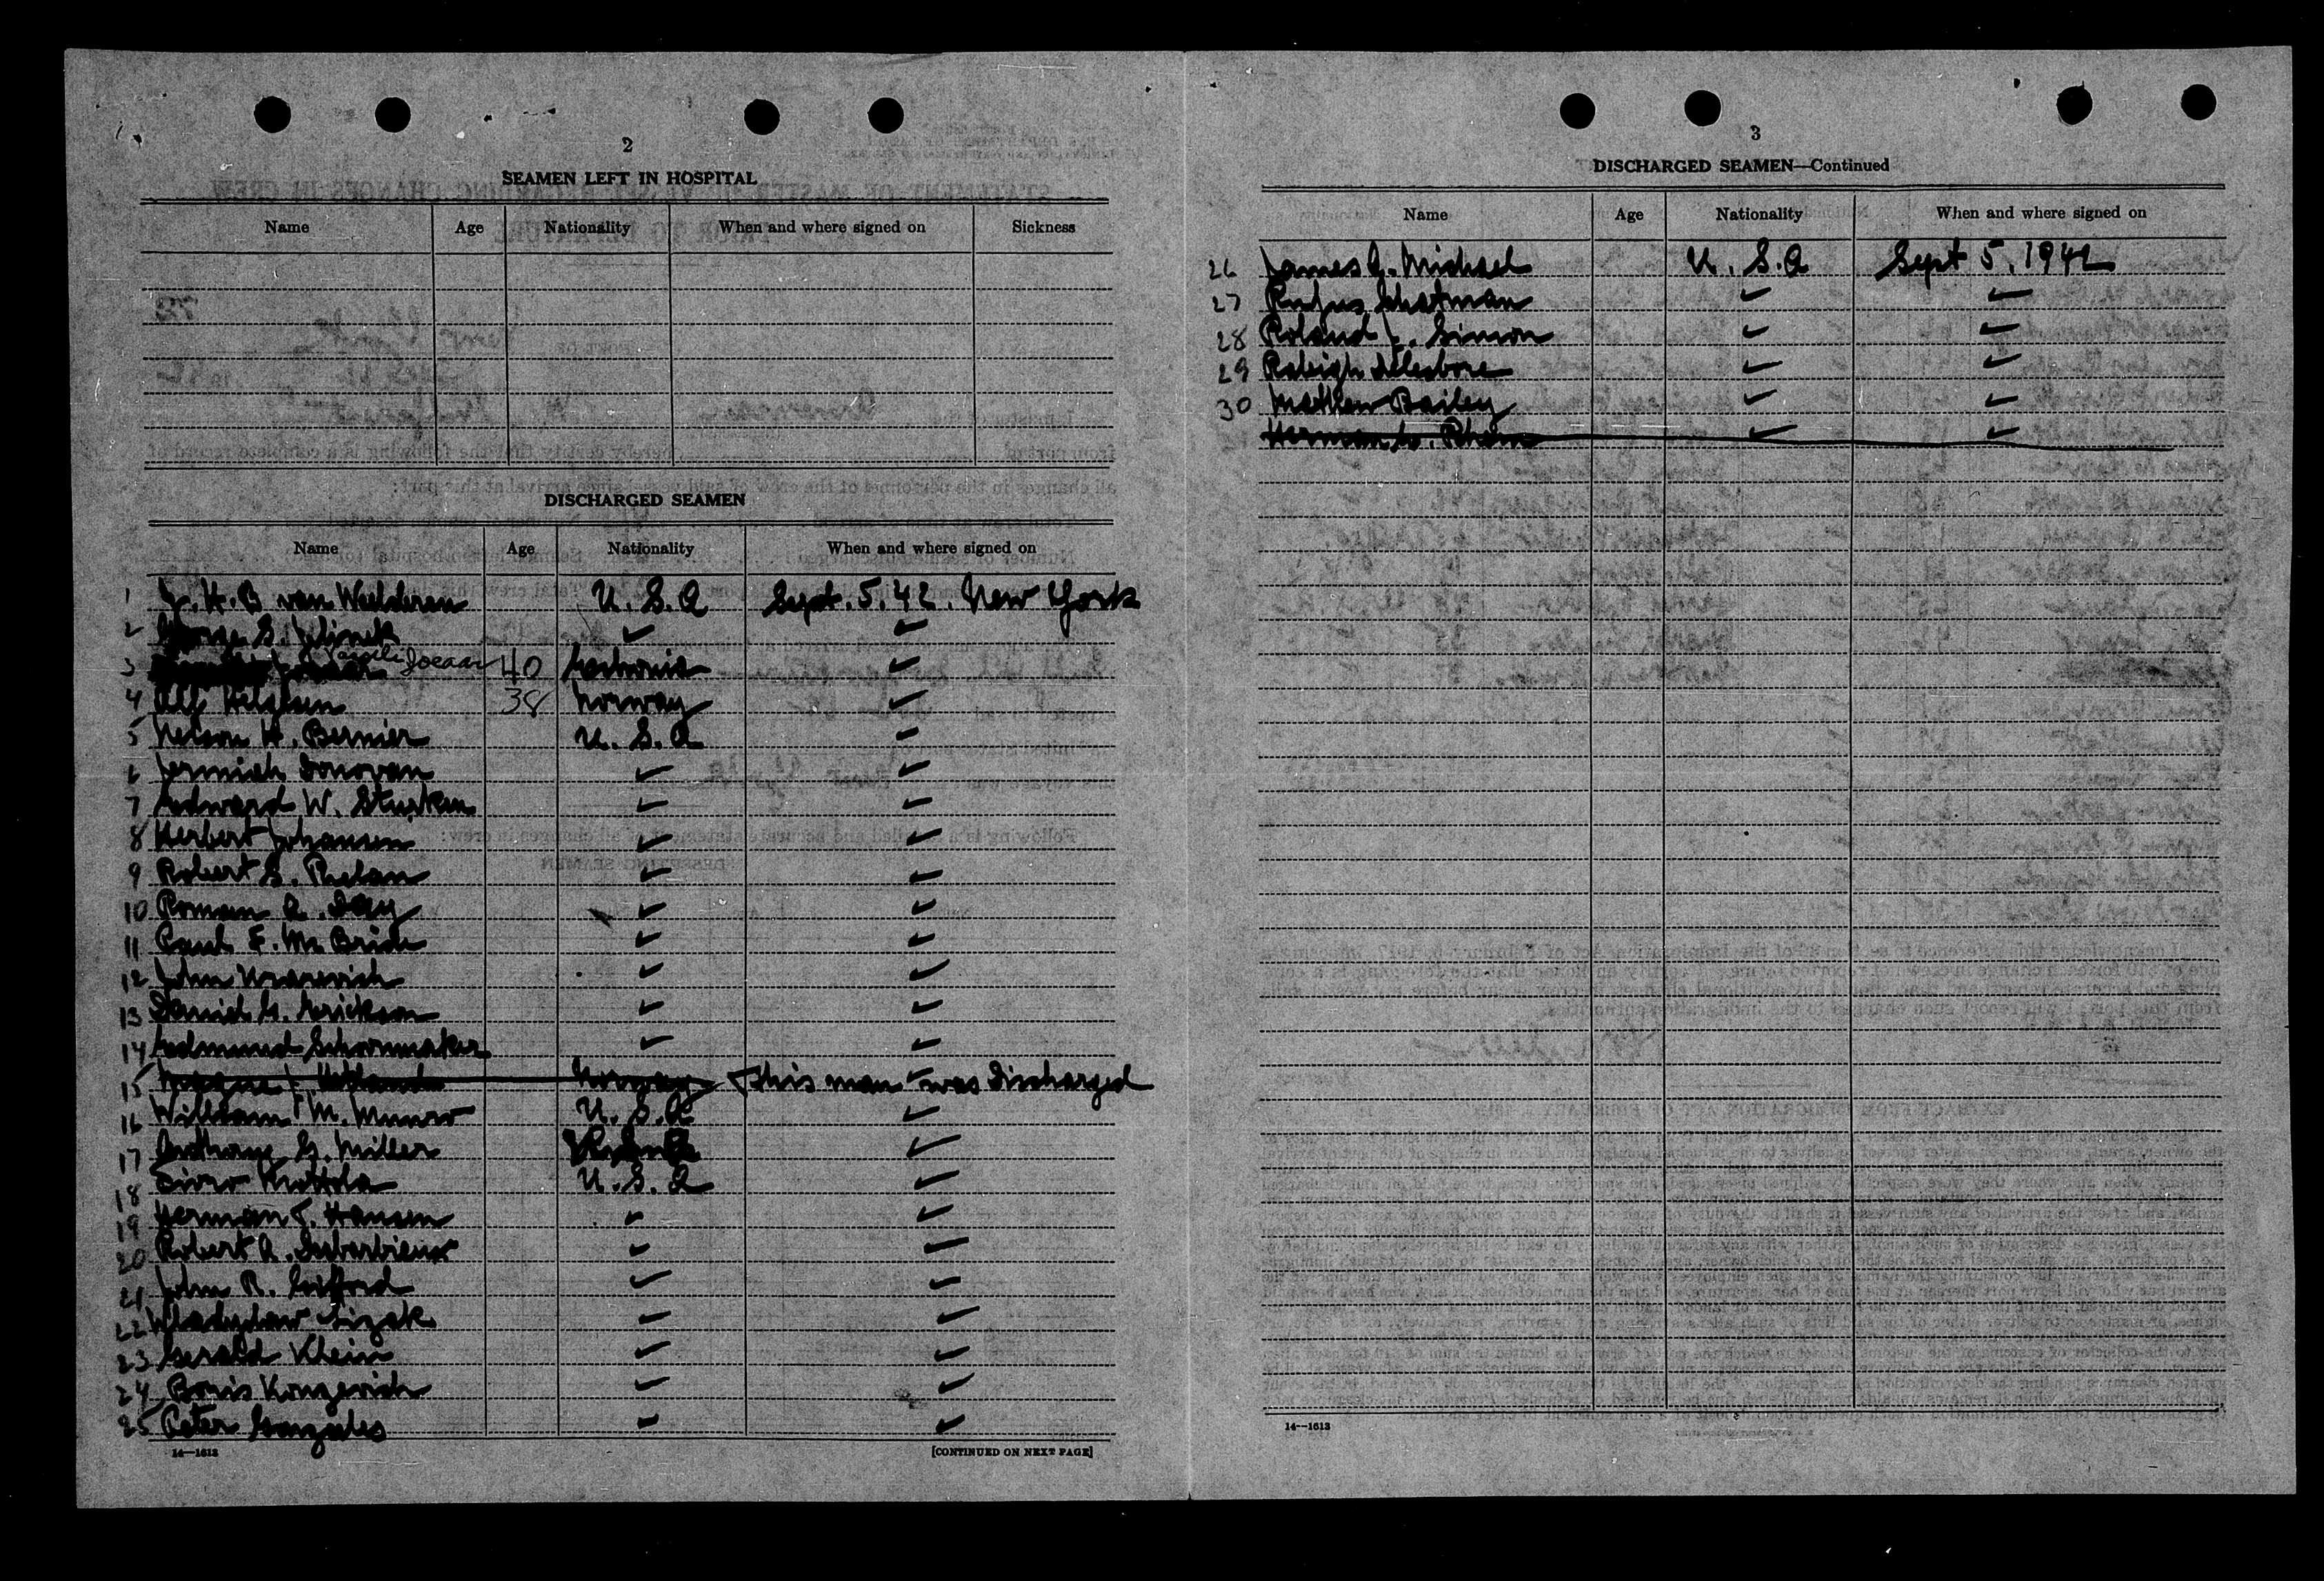 2
SEAMEN LEFT IN HOSPITAL
Name Age Nationality When and where signed on Sickness
DISCHARGED SEAMEN
Name Age Nationality When and where signed on
1 J. H. B van Weelderen U. S. A Sept. 5. 42. New York
2 George S. Jelinek ✓ ✓
3 Joeaar 40 Esthonia ✓
4 Alf Nilsen 38 Norway ✓
5 Nelson H. Bernier U. S. A ✓
6 Jermiah Donovan ✓ ✓
7 Edward W. Stusken ✓ ✓
8 Herbert Johansen ✓ ✓
9 Robert S. Phelan ✓ ✓
10 Roman A. Day ✓ ✓
11 Paul F. Mc Bride ✓ ✓
12 John ✓ ✓
13 Daniel G. Erickson ✓ ✓
14 Edmund Schoonmaker ✓ ✓
15 Norway ✓ This man was discharged
16 William M. Munro U. S. A ✓
17 Anthony G. Miller ✓
18 Mottola U. S. A ✓
19 Herman T. Hansen ✓ ✓
20 Robert A. ✓ ✓
21 John R. Gifford ✓ ✓
22 Wladyslaw ✓ ✓
23 Gerald Klein ✓ ✓
24 Boris Kongevich ✓ ✓
25 Peter Gonzales ✓ ✓
14—1613 [CONTINUED ON NEXT PAGE]
3
DISCHARGED SEAMEN—Continued
Name Age Nationality When and where signed on
26 James G. Michael U. S. A Sept 5. 1942
27 Rufus Chatman ✓ ✓
28 Roland J. Simon ✓ ✓
29 Raleigh ✓ ✓
30 Mathew Bailey ✓ ✓
Herman ✓ ✓
14—1613